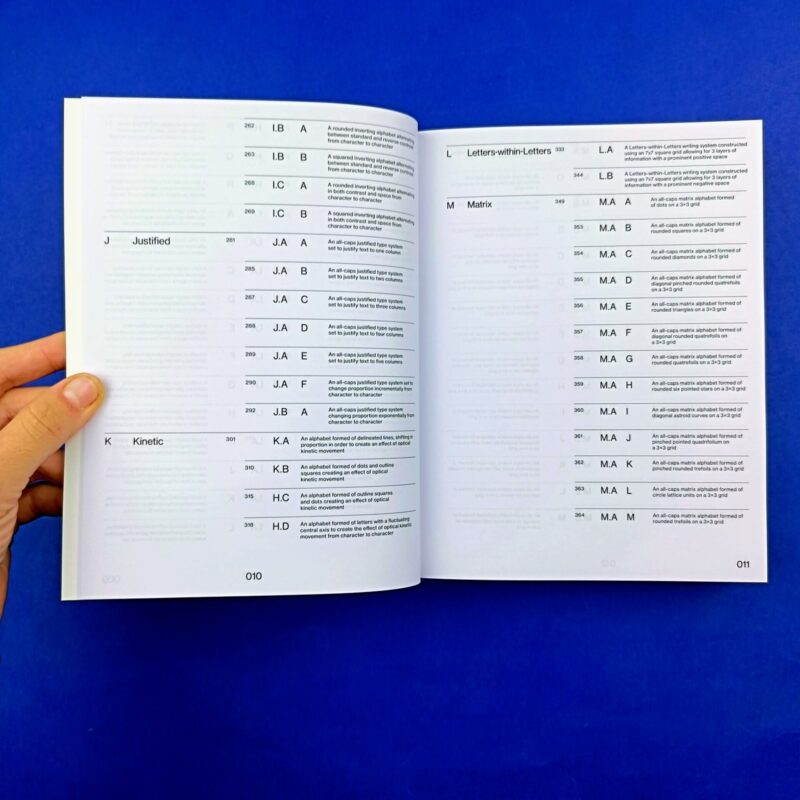 262 I.B A A rounded inverting alphabet alternating
between standard and reverse contrast
from character to character
263 I.B B A squared inverting alphabet alternating
between standard and reverse contrast
from character to character
268 I.C A A rounded inverting alphabet alternating
in both contrast and space from
character to character
269 I.C B A squared inverting alphabet alternating
in both contrast and space from
character to character
J Justified 281 J.A A An all-caps justified type system
set to justify text to one column
285 J.A B An all-caps justified type system
set to justify text to two columns
287 J.A C An all-caps justified type system
set to justify text to three columns
288 J.A D An all-caps justified type system
set to justify text to four columns
289 J.A E An all-caps justified type system
set to justify text to five columns
290 J.A F An all-caps justified type system set to
change proportion incrementally from
character to character
292 J.B A An all-caps justified type system
changing proportion exponentially from
character to character
K Kinetic 301 K.A An alphabet formed of delineated lines, shifting in
proportion in order to create an effect of optical
kinetic movement
310 K.B An alphabet formed of dots and outline
squares creating an effect of optical
kinetic movement
315 H.C An alphabet formed of outline squares
and dots creating an effect of optical
kinetic movement
318 H.D An alphabet formed of letters with a fluctuating
central axis to create the effect of optical kinetic
movement from character to character
010
L Letters-within-Letters 333 L.A A Letters-within-Letters writing system constructed
using an 7x7 square grid allowing for 3 layers of
information with a prominent positive space
344 L.B A Letters-within-Letters writing system constructed
using an 7x7 square grid allowing for 3 layers of
information with a prominent negative space
M Matrix 349 M.A A An all-caps matrix alphabet formed
of dots on a 3×3 grid
353 M.A B An all-caps matrix alphabet formed of
rounded squares on a 3×3 grid
354 M.A C An all-caps matrix alphabet formed of
rounded diamonds on a 3×3 grid
355 M.A D An all-caps matrix alphabet formed of
diagonal pinched rounded quatrefoils
on a 3×3 grid
356 M.A E An all-caps matrix alphabet formed of
rounded triangles on a 3×3 grid
357 M.A F An all-caps matrix alphabet formed of
diagonal rounded quatrefoils on
a 3×3 grid
358 M.A G An all-caps matrix alphabet formed of
rounded quatrefoils on a 3×3 grid
359 M.A H An all-caps matrix alphabet formed of
rounded six pointed stars on a 3×3 grid
360 M.A I An all-caps matrix alphabet formed of
diagonal astroid curves on a 3×3 grid
361 M.A J An all-caps matrix alphabet formed of
pinched pointed quatrifolium on
a 3×3 grid
362 M.A K An all-caps matrix alphabet formed of
pinched rounded trefoils on a 3×3 grid
363 M.A L An all-caps matrix alphabet formed of
circle lattice units on a 3×3 grid
364 M.A M An all-caps matrix alphabet formed of
rounded trefoils on a 3×3 grid
011